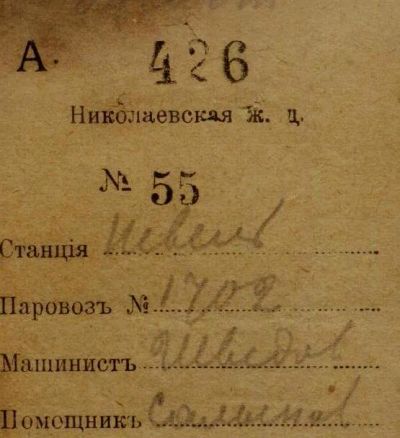 А. 426
Николаевская ж. д.
№ 55
Станція
Паровозъ № 1702
Машинистъ Шведов
Помощникъ